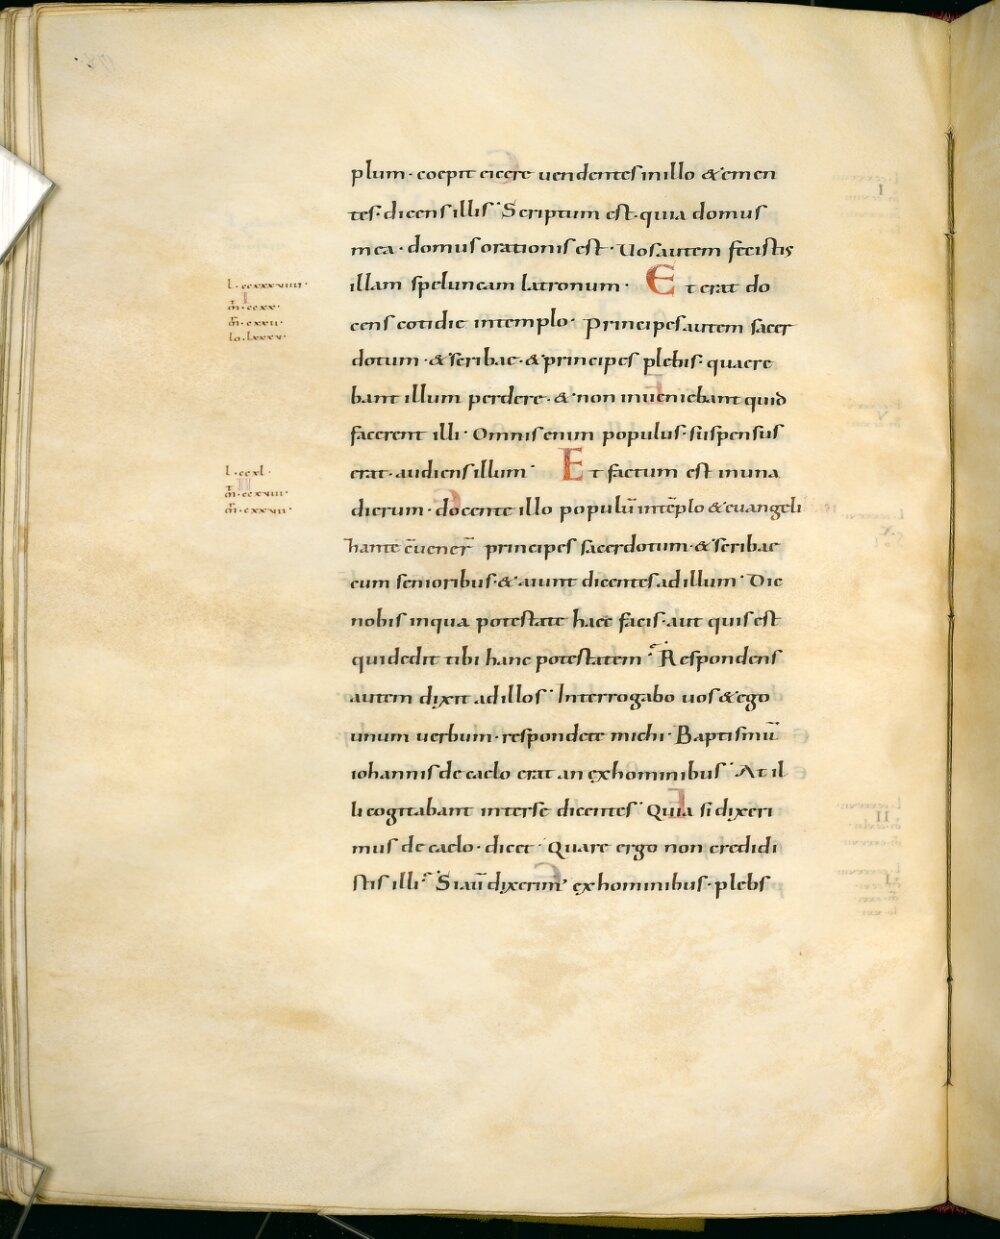 plum · coepit eicere uendentes in illo & emen
tes · dicens illis · Scriptum est · quia domus
mea · domus orationis est · Uos autem fecistis
illam speluncam latronum · Et erat do
l · ccxxxuiiii ·
I
m̄ · ccxx ·
m̄ · cxxii ·
Io · lxxxu ·
cens cotidie in templo · Principes autem sacer
dotum · & scribae · & principes plebis · quaere
bant illum perdere · & non inueniebant quid
facerent illi · Omnis enim populus · suspensus
erat · audiens illum · Et factum est in una
l · ccxl ·
II
m̄ · ccxuiii ·
m̄ · cxxuii ·
dierum · docente illo populū in tēplo & euangeli
hante cuenerͭ principes sacerdotum · & scribae
cum senioribus · & aiunt dicentes ad illum · Dic
nobis in qua potestate haec facis · aut quis est
qui dedit tibi hanc potestatem · Respondens
autem dixit ad illos · Interrogabo uos & ego
unum uerbum · respondete michi · Baptismū
iohannis de caelo erat an ex hominibus · At il
li cogitabant inter se dicentes · Quia si dixeri
mus de caelo · dicet · Quare ergo non credidi
stis illi · Si aū dixerim' ex hominibus · plebs